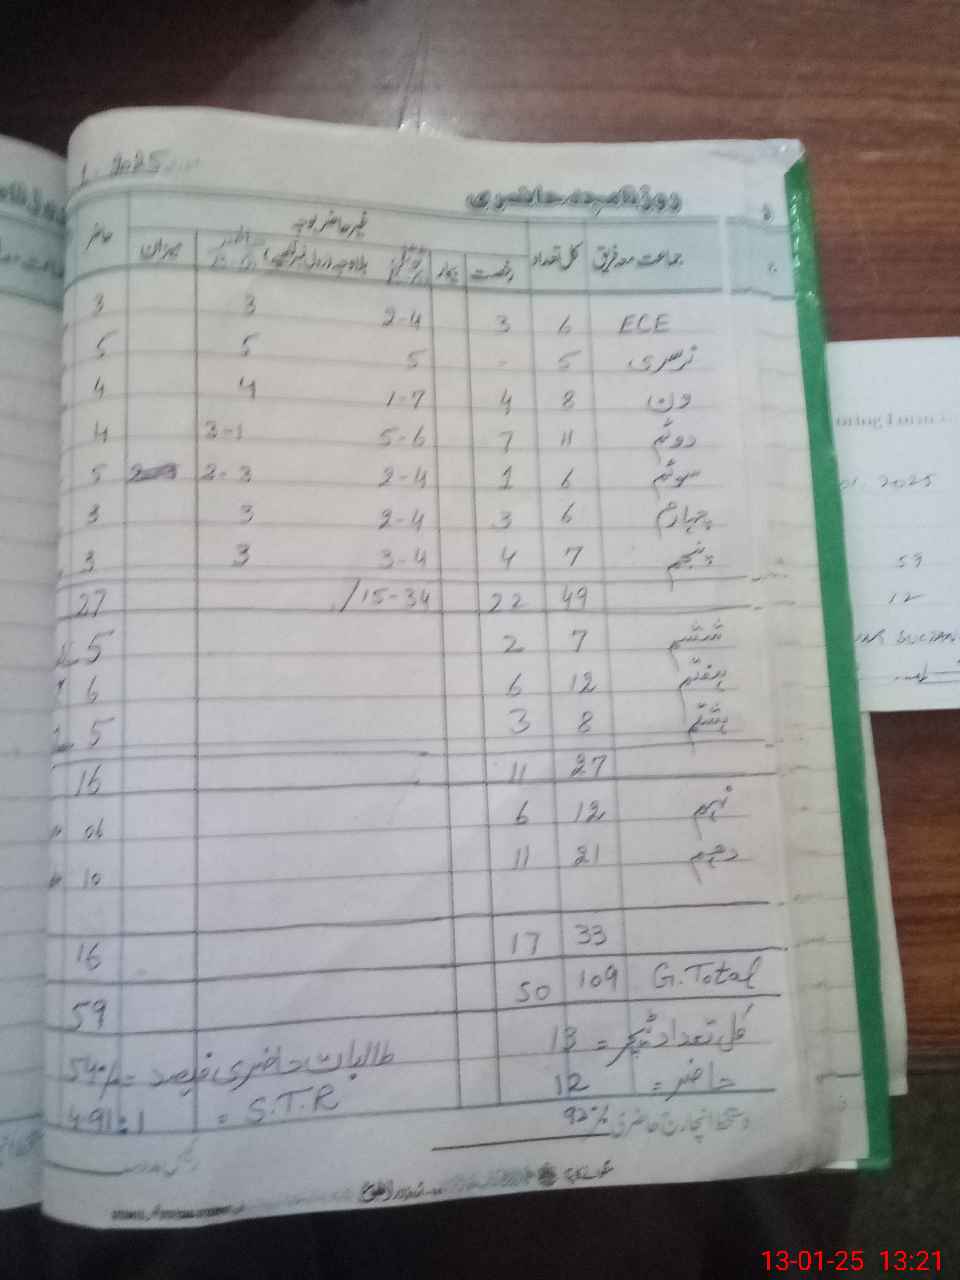 1. 2025
روزنامچہ حاضری
غیر حاضر بوجہ
جماعت معہ فریق کل تعداد رخصت بیمار میزان حاضر
ECE 6 3 2-4 3 3
نرسری 5 - 5 5 5
ون 8 4 1-7 4 4
دوئم 11 7 5-6 3-1 4
سوئم 6 1 2-4 2-3 5
چہارم 6 3 2-4 3 3
پنجم 7 4 3-4 3 3
49 22 15-34/ 27
ششم 7 2 5
ہفتم 12 6 6
ہشتم 8 3 5
27 11 16
نہم 12 6 06
دہم 21 11 10
33 17 16
G.Total 109 50 59
کل تعداد ٹیچر = 13 طالبات حاضری فیصد = 54%
حاضر = 12 S.T.R = 4.91:1
دستخط انچارج حاضری 92%
01.2025
59
12
SULTAN
13-01-25 13:21